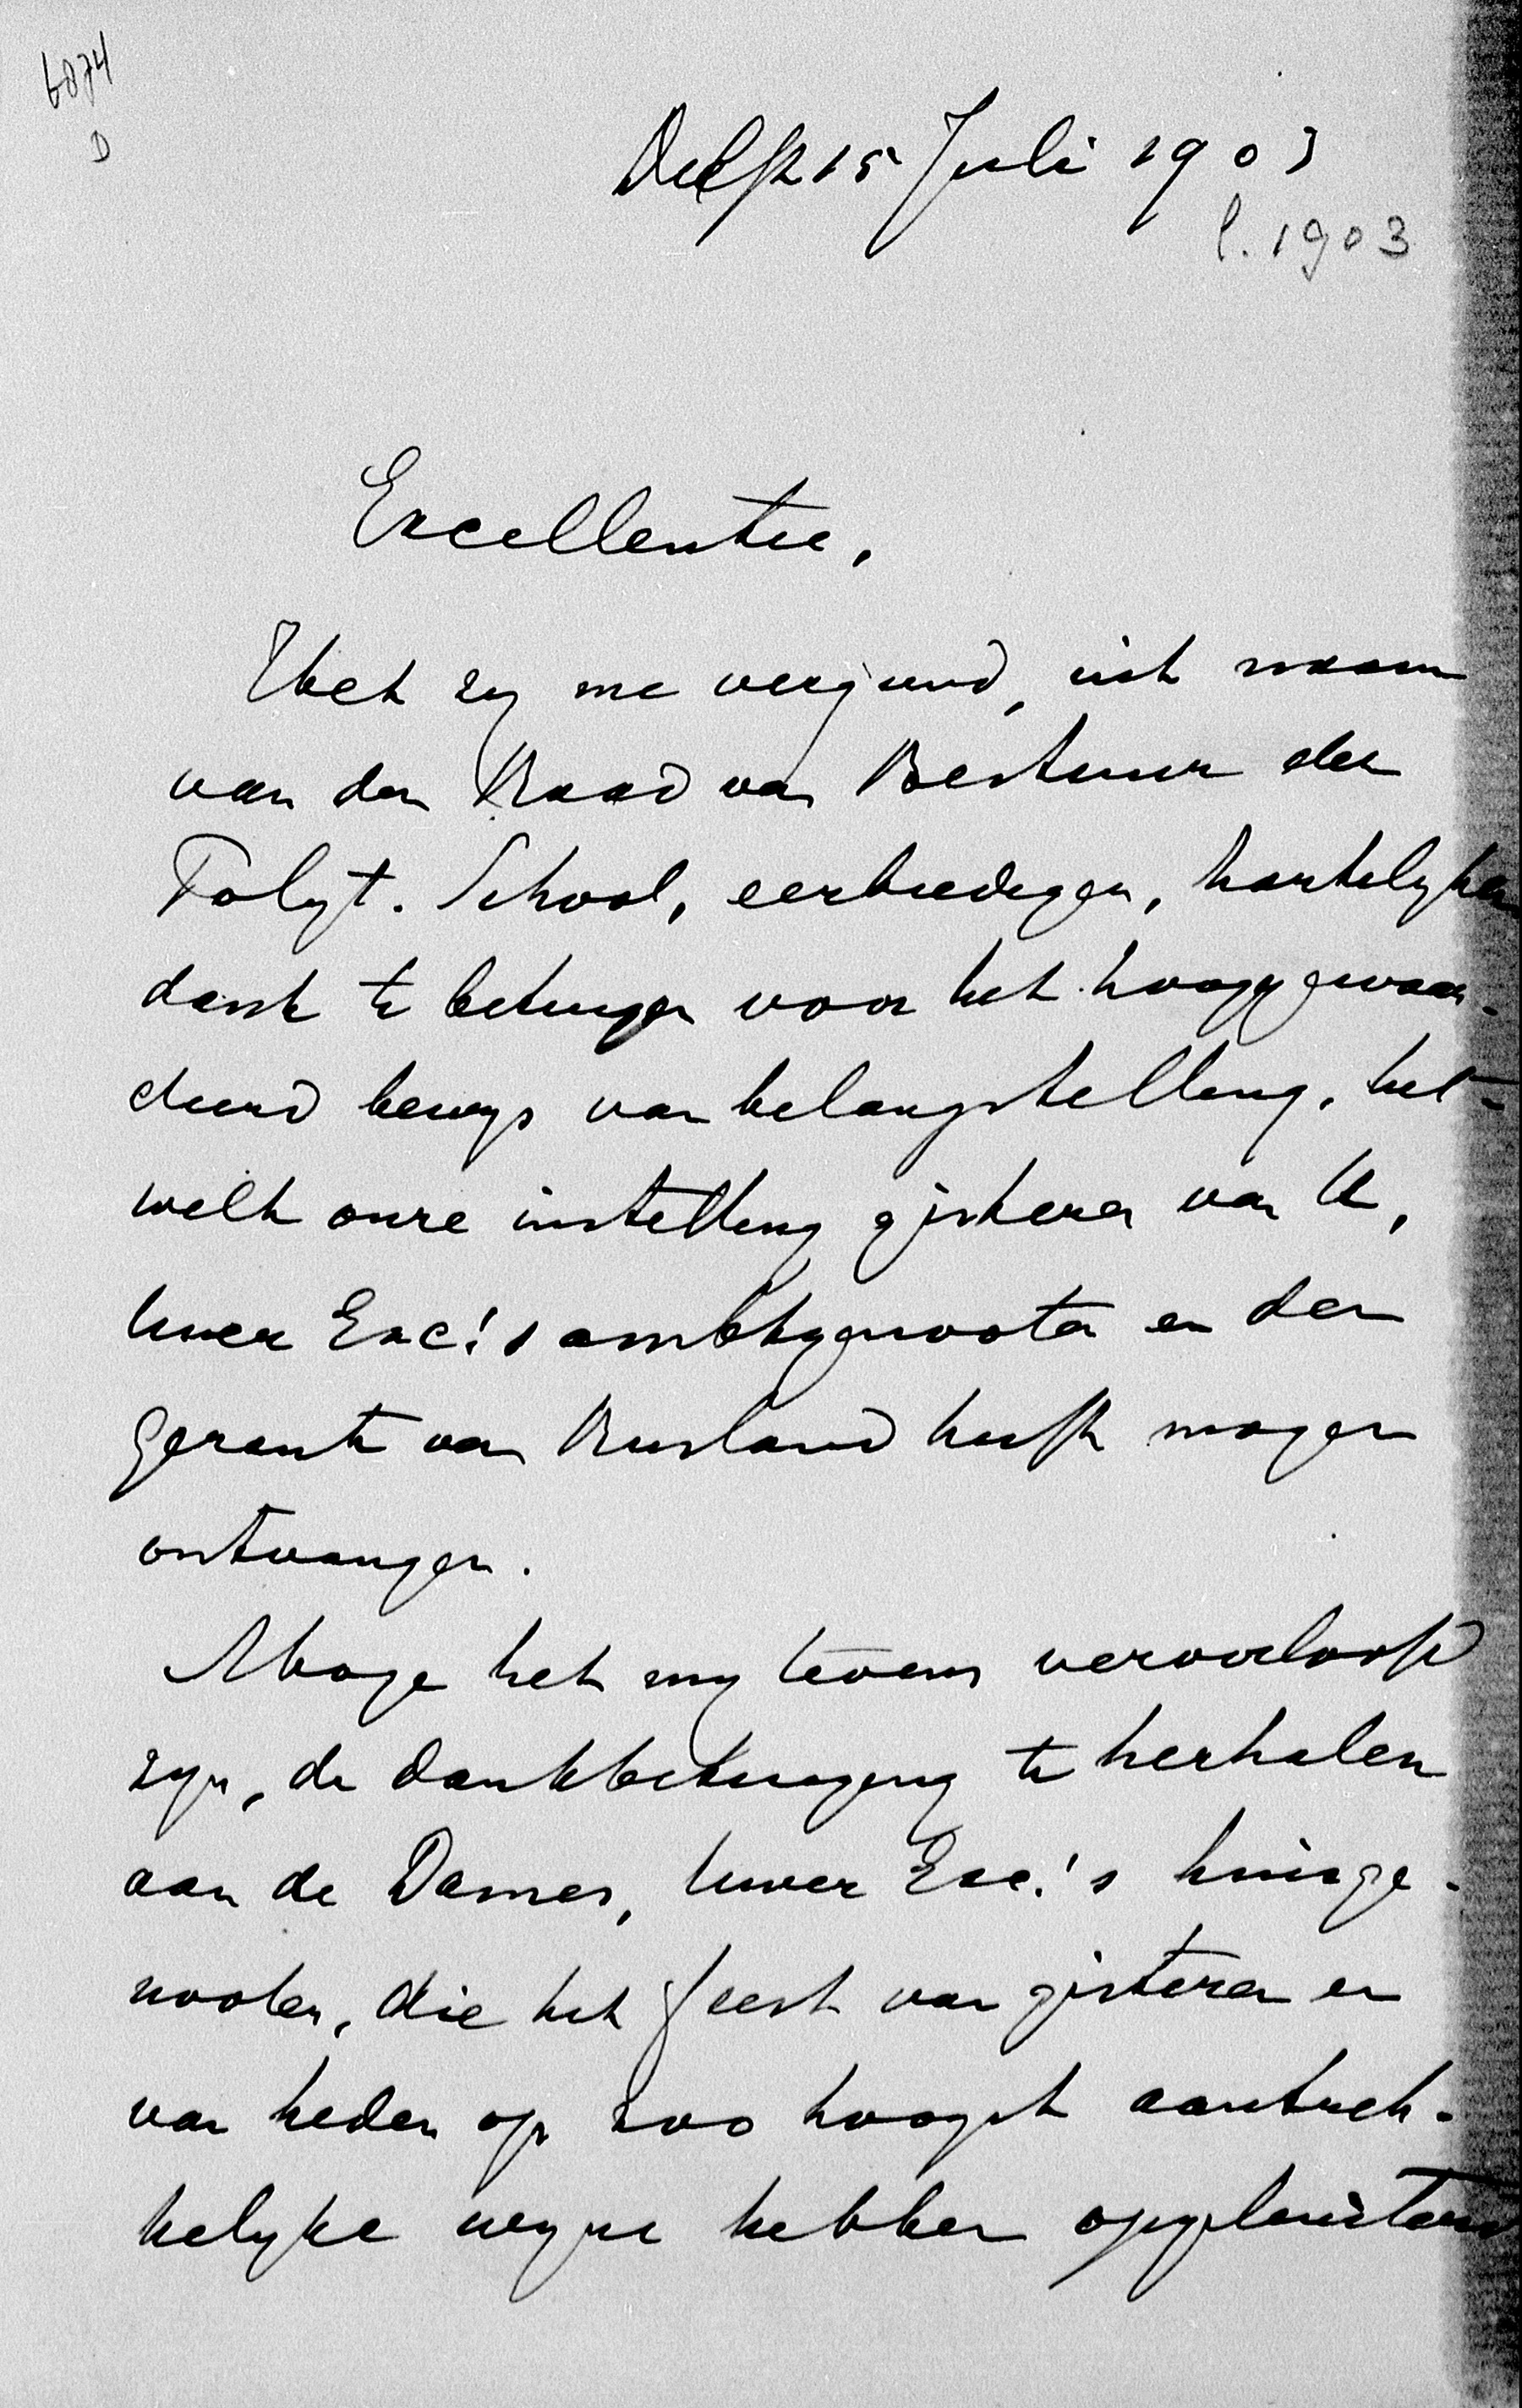 6874
D
Delft 15 Juli 1903
l. 1903
Excellentie,
Het zij me vergund, uit naam
van den Raad van Bestuur der
Polyt. School, eerbiedigen, hartelyken
dank te betuigen voor het hooggewaar-
deerd bewys van belangstelling, het-
welk onze instelling gisteren van U,
Uwer Exc.'s ambtgenooten en den
Gerant van Rusland heeft mogen
ontvangen.
Moge het my tevens veroorloofd
zyn, de dankbetuiging te herhalen
aan de Dames, Uwer Exc.'s huisge-
nooten, die het feest van gisteren en
van heden op zoo hoogst aantrek-
kelyke wyze hebben opgeluisterd